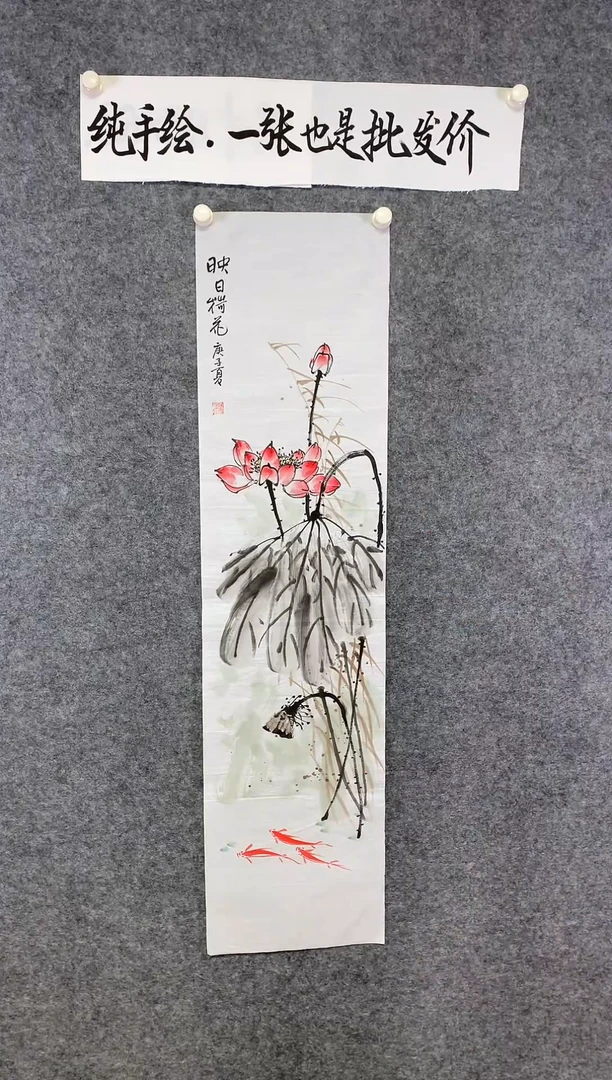 纯手绘.一张也是批发价
映日荷花
庚子夏